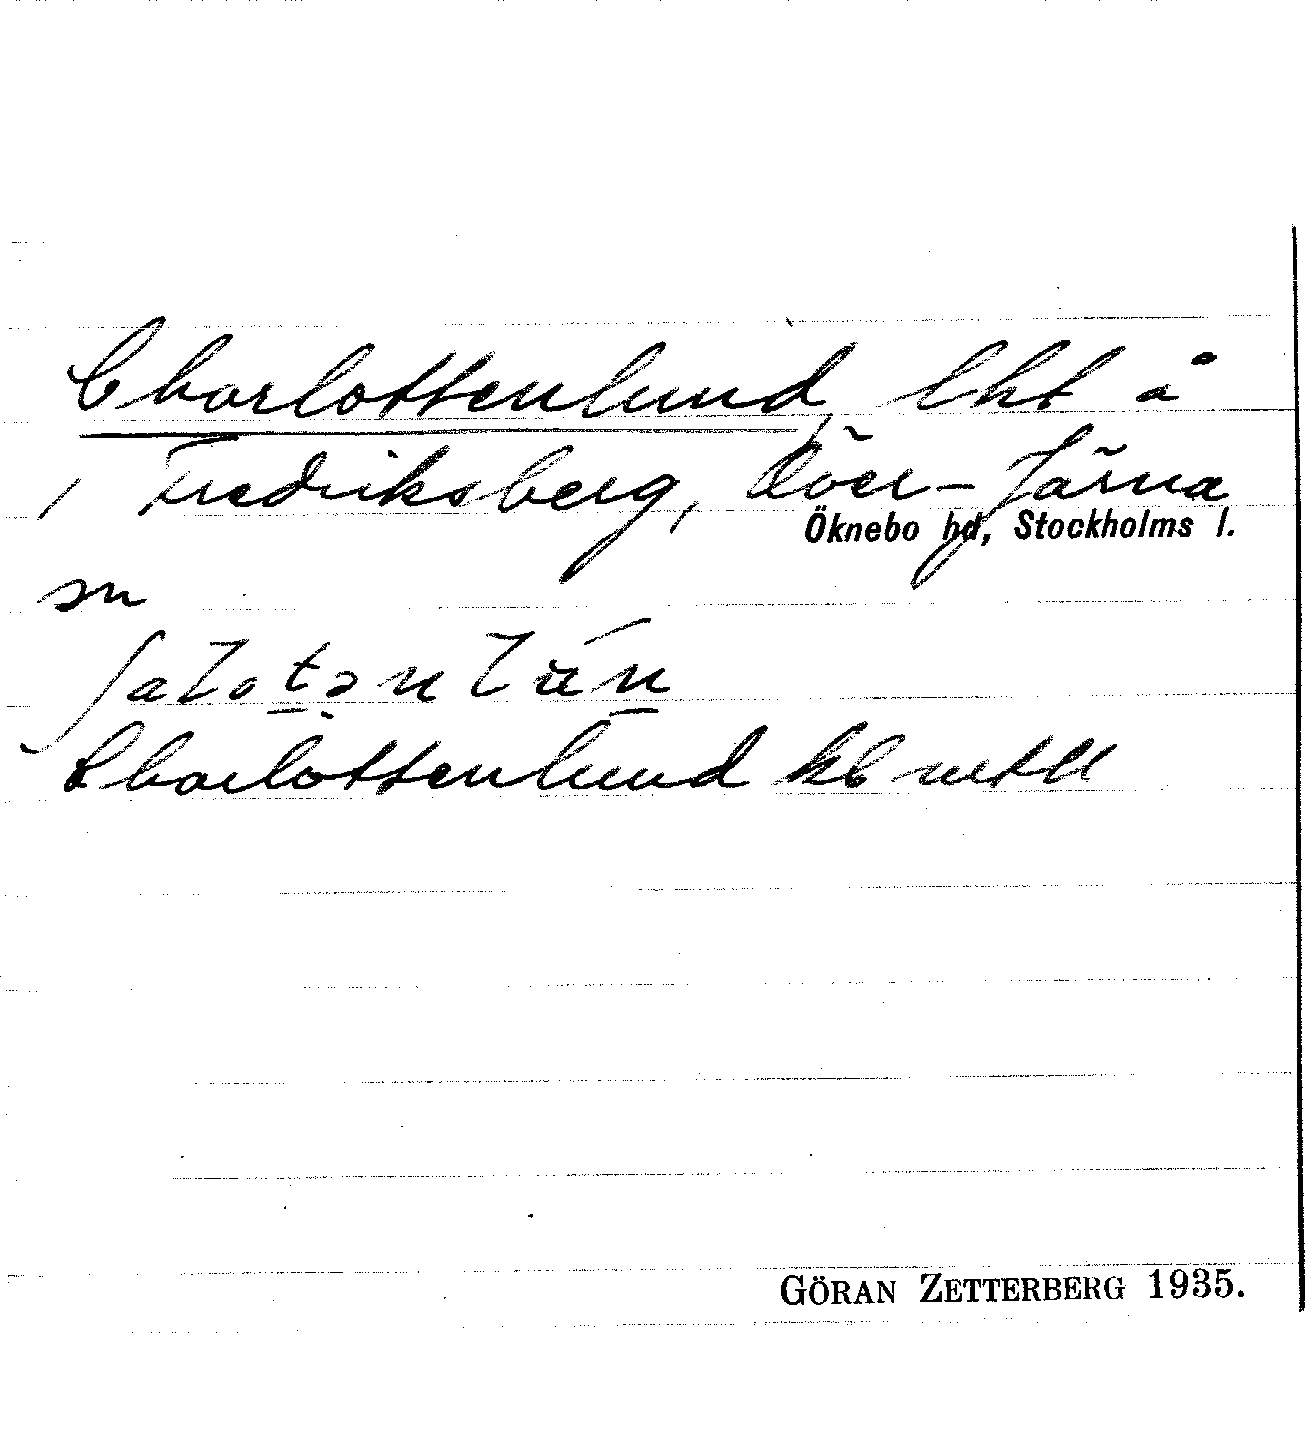 Charlottenlund, lht å
/ Fredriksberg, Över-Järna
Öknebo hd, Stockholms l.
sn
Charlottenlund kb
GÖRAN ZETTERBERG 1935.